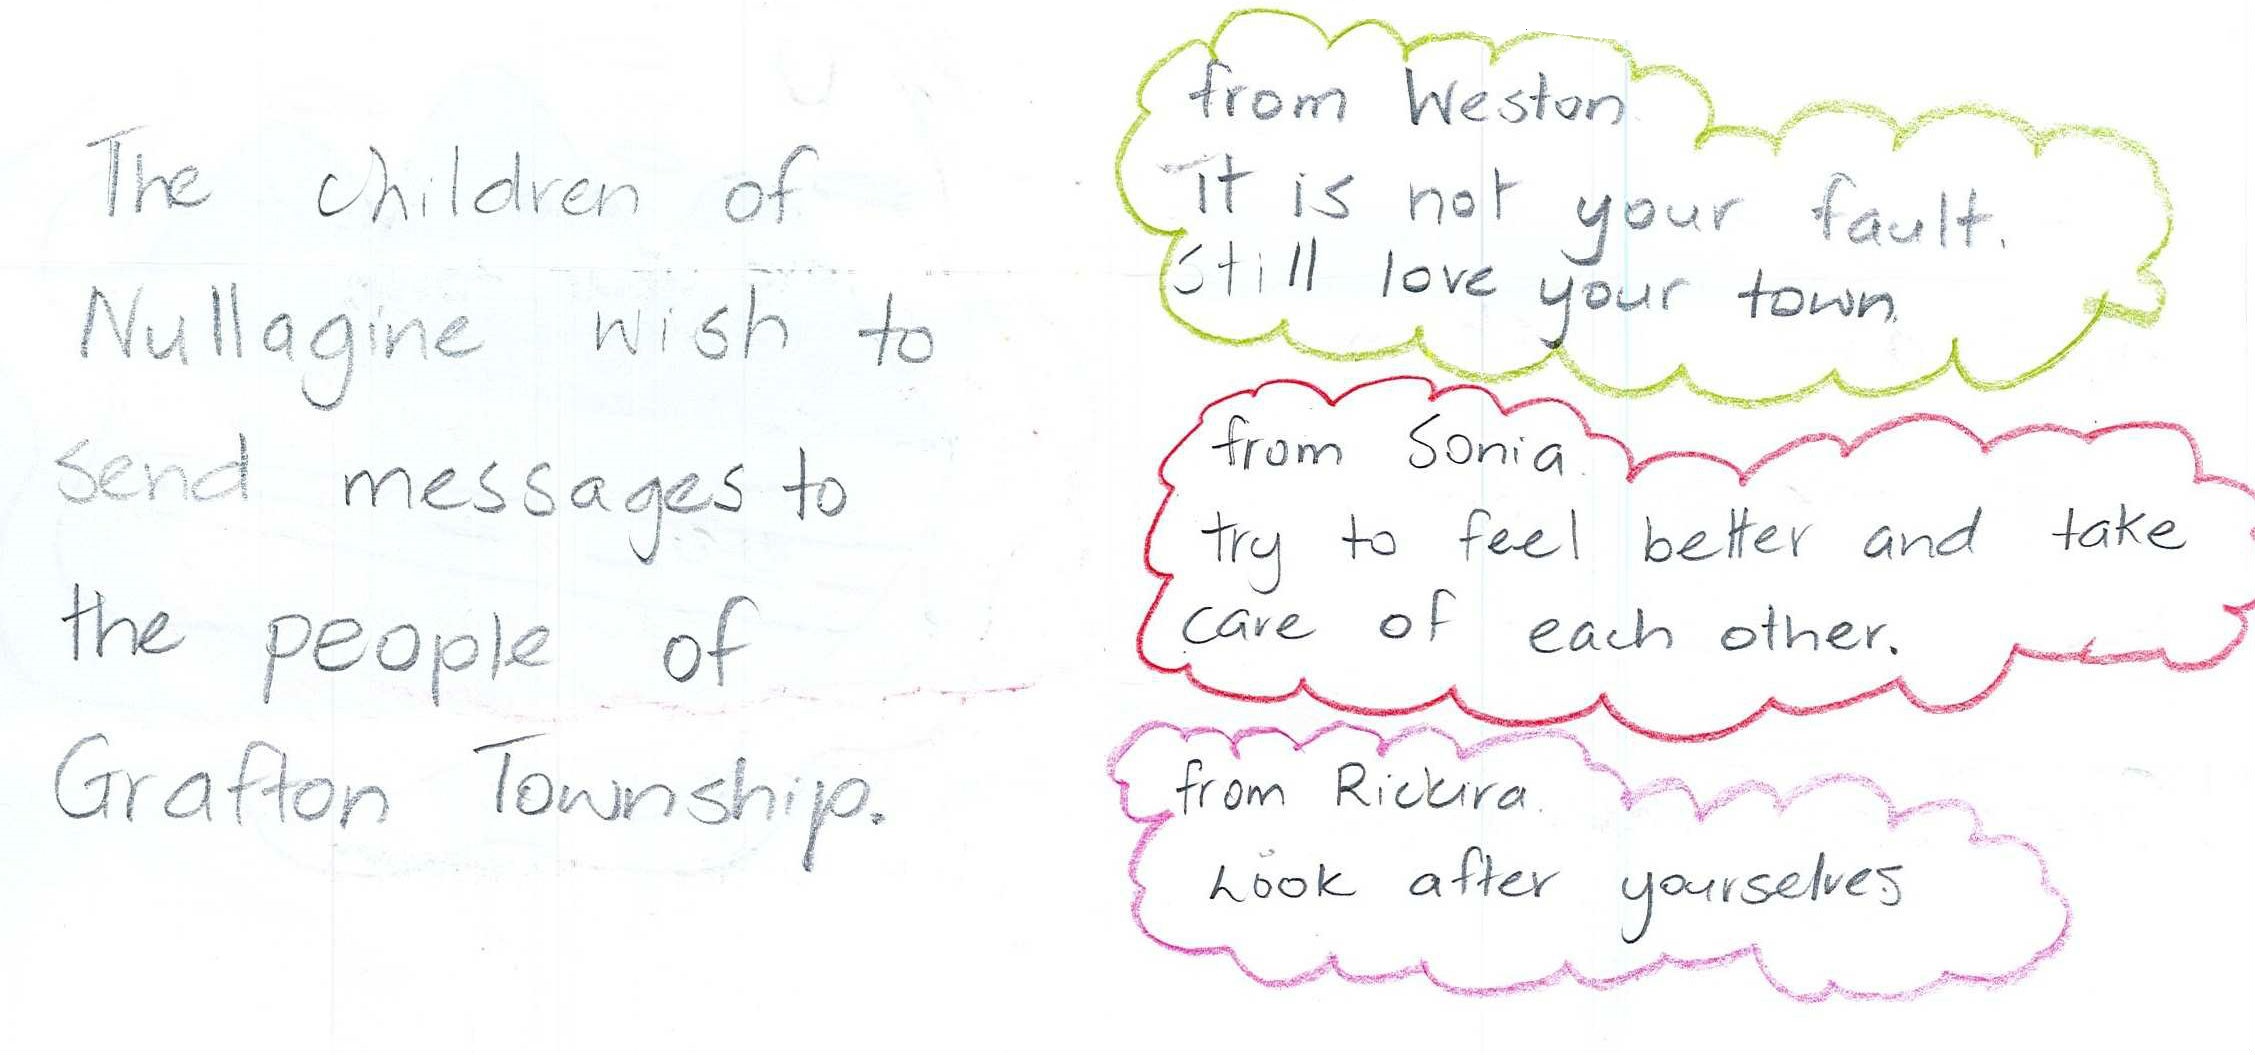 The children of
Nullagine wish to
send messages to
the people of
Grafton Township.
from Weston.
It is not your fault.
Still love your town.
from Sonia.
try to feel better and take
care of each other.
from Rickira.
Look after yourselves